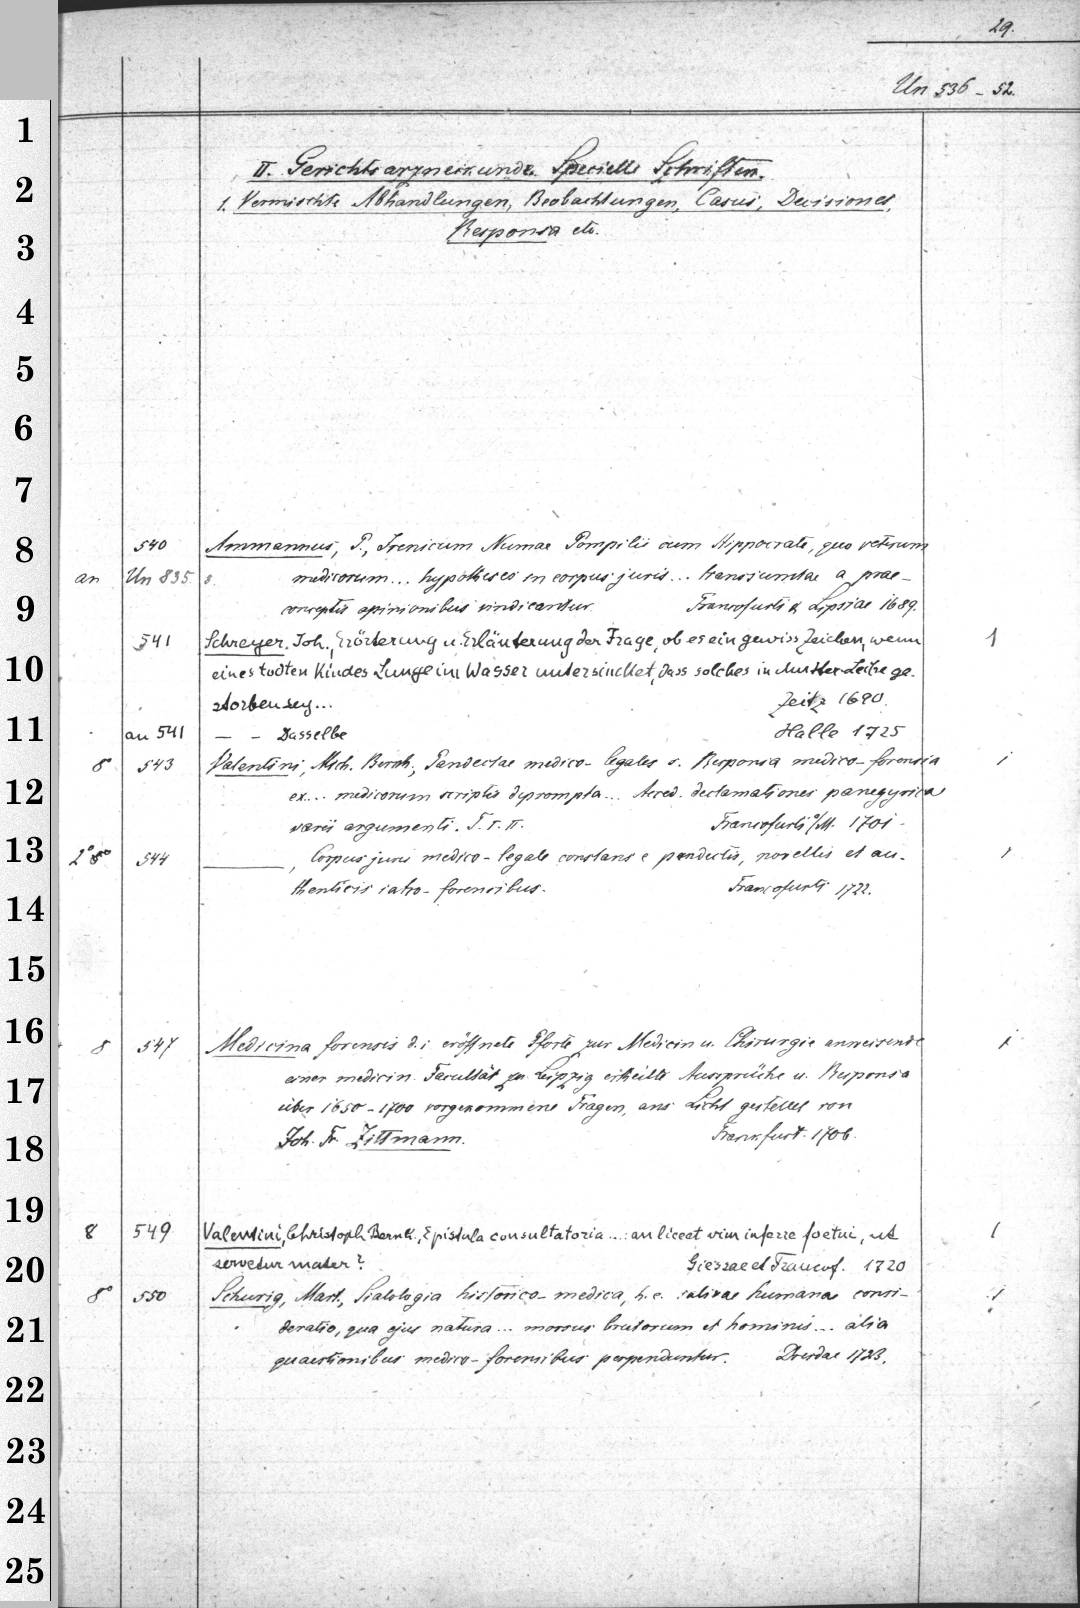 29.
Un 536 - 52.
II. Gerichtsarzneikunde. Specielle Schriften.
1. Vermischte Abhandlungen, Beobachtungen, Casus, Decisiones,
Responsa etc.
540 Ammannus, P., Irenicum Numae Pompilii cum Hippocrate, quo veterum
an Un 835. 8. medicorum... hypotheses in corpus juris... transsumtae a prae-
conceptis opinionibus vindicantur. Francofurti & Lipsiae 1689.
541 Schreyer, Joh., Erörterung u. Erläuterung der Frage, ob es ein gewiss Zeichen, wenn 1
eines todten Kindes Lunge im Wasser untersincket, dass solches in Mutter-Leibe ge-
storben sey... Zeitz 1690.
an 541 — — Dasselbe Halle 1725
8° 543 Valentini, Mich. Bernh., Pandectae medico-legales s. Responsa medico-forensia 1
ex... medicorum scriptis deprompta... Acced. declamationes panegyricae
varii argumenti. T. I. II. Francofurti a/M. 1701.
2° 544 ———, Corpus juris medico-legale constans e pandectis, novellis et au- 1
thenticis iatro-forensibus. Francofurti 1722.
8 547 Medicina forensis d. i. eröffnete Pforte zur Medicin u. Chirurgie anweisende 1
einer medicin. Facultät zu Leipzig ertheilte Aussprüche u. Responsa
über 1650-1700 vorgekommene Fragen, ans Licht gestellet von
Joh. Fr. Zittmann. Frankfurt. 1706.
8 549 Valentini, Christoph Bernh., Epistula consultatoria...: an liceat vim inferre foetui, ut 1
servetur mater? Giessae et Francof. 1720
8° 550 Schurig, Mart., Sialologia historico-medica, h. e. salivae humanae consi- 1
deratio, qua ejus natura... morsus brutorum et hominis... alia
quaestionibus medico-forensibus perpenduntur. Dresdae 1723.
1
2
3
4
5
6
7
8
9
10
11
12
13
14
15
16
17
18
19
20
21
22
23
24
25